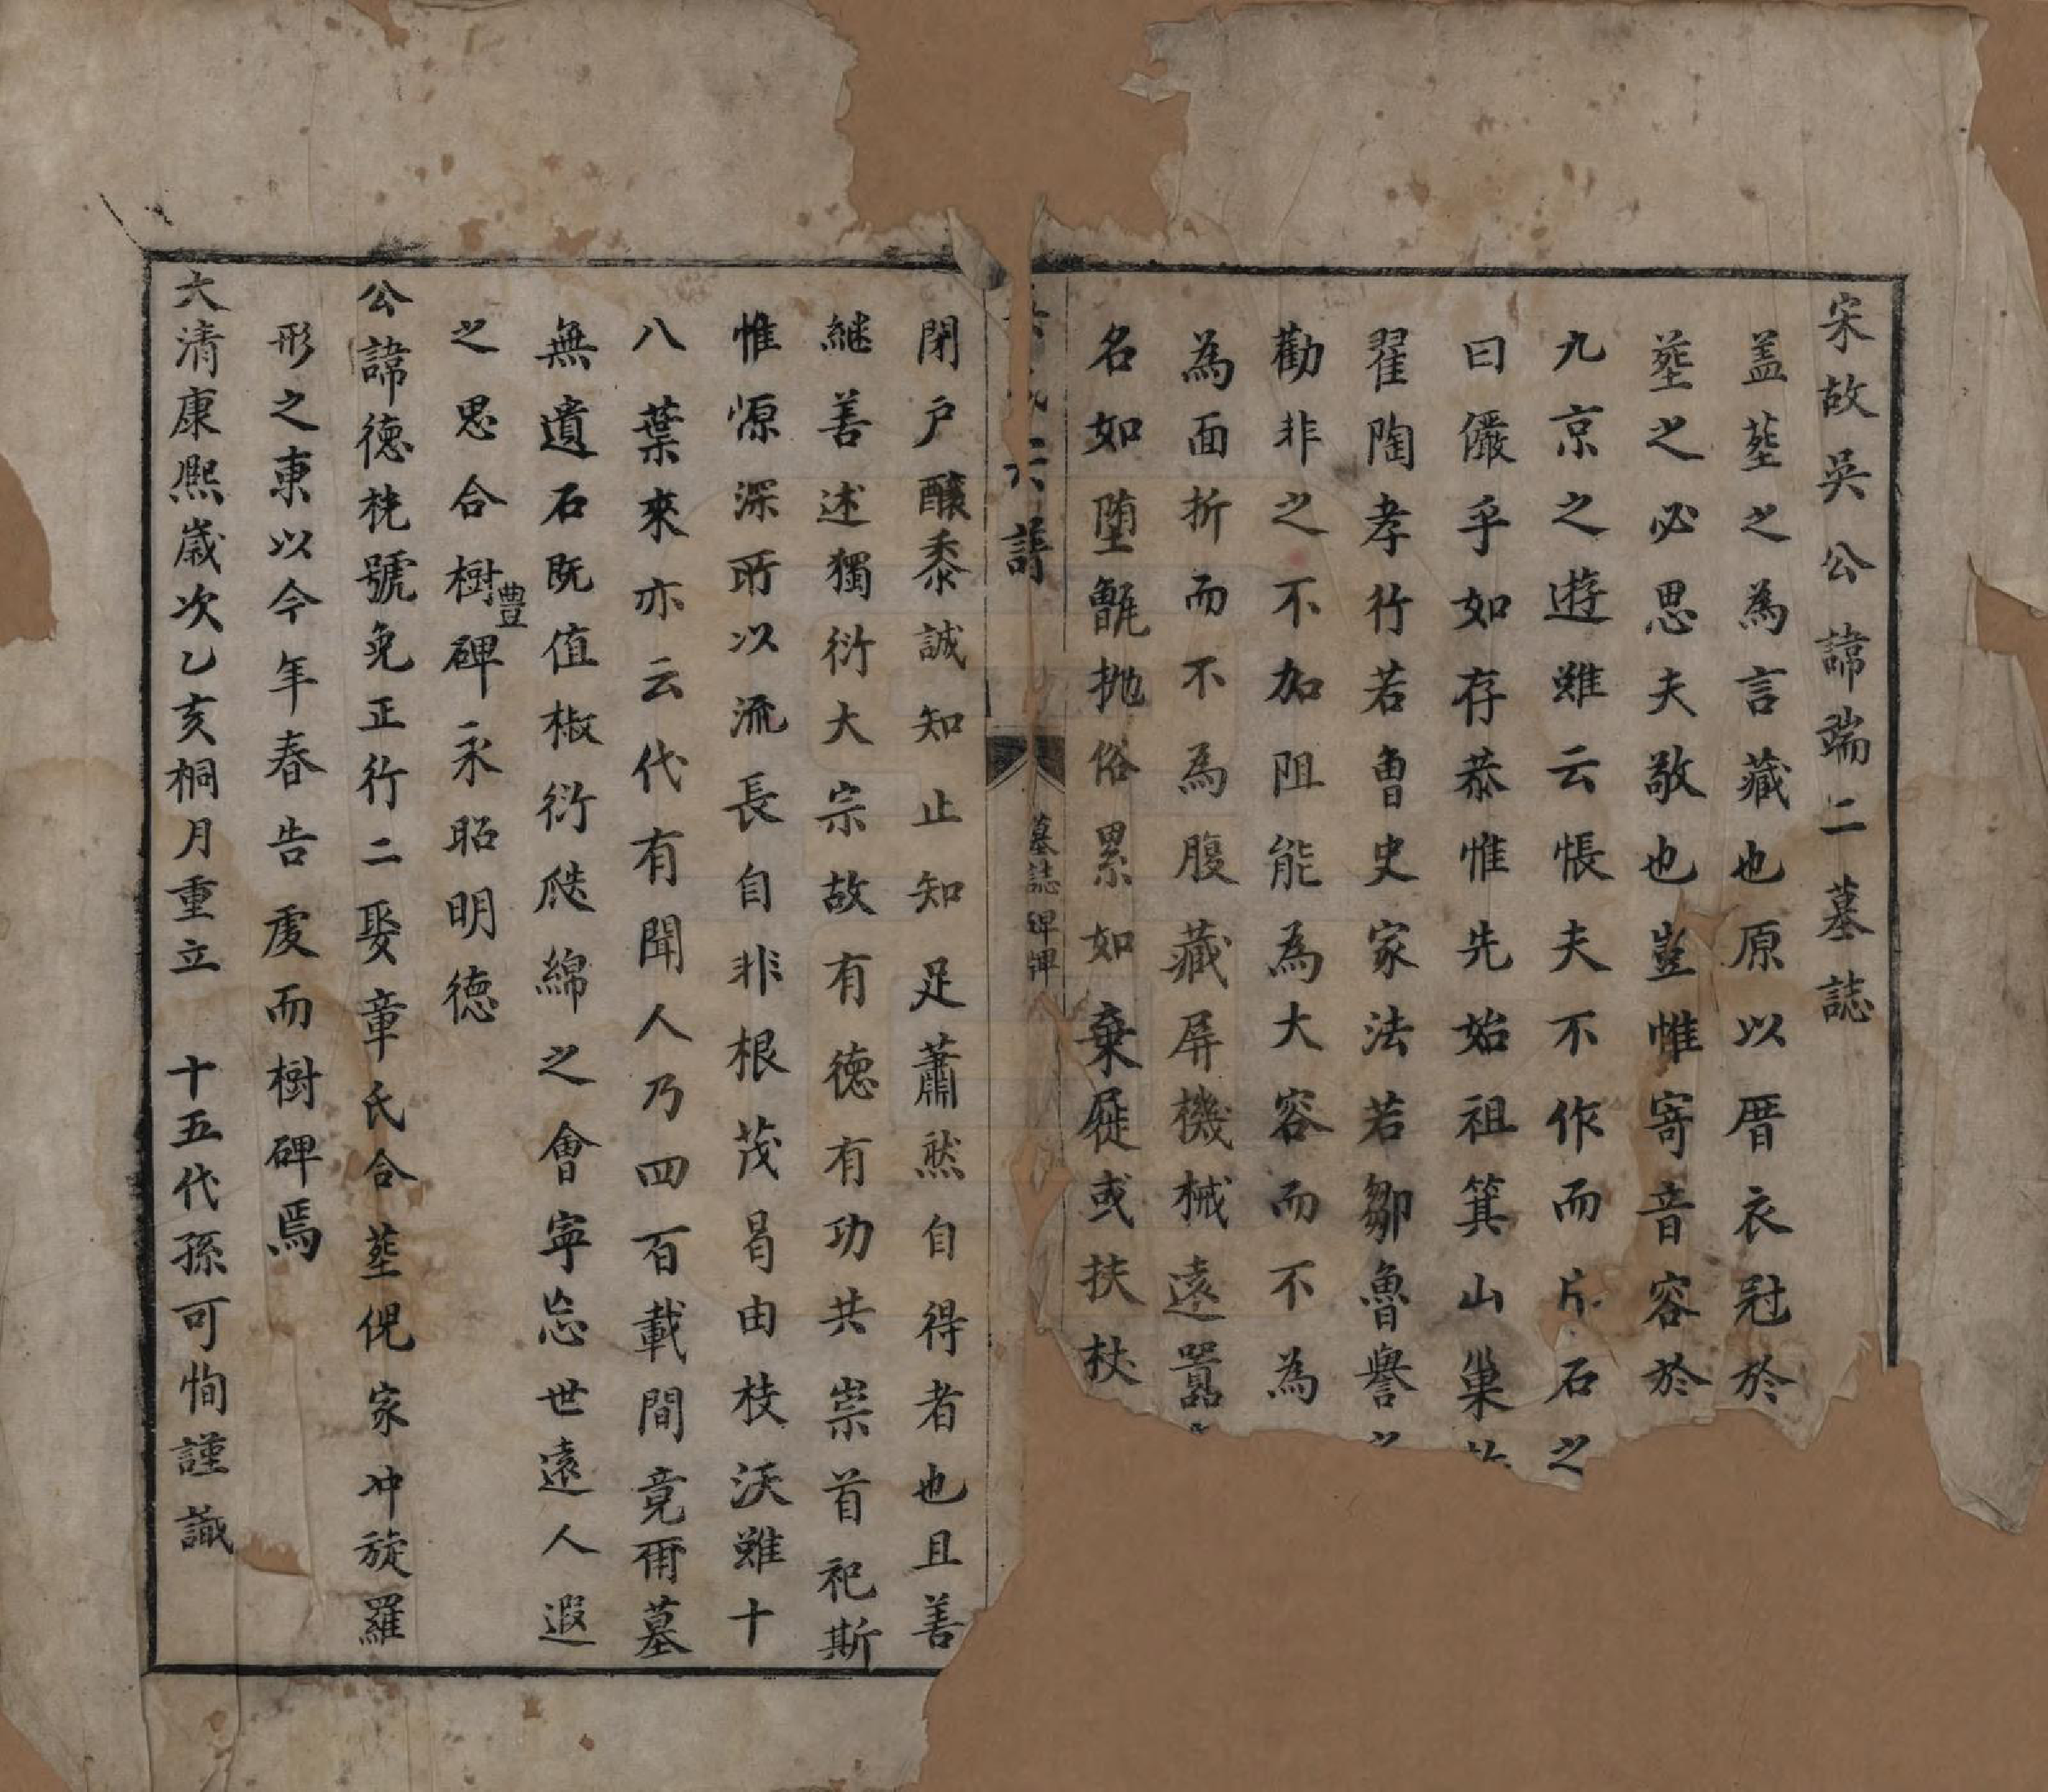 宋故吳公諱端二墓誌
盖塟之為言藏也原以厝衣冠於
塟之必思夫敬也豈惟寄音容於
九京之遊雖云悵夫不作而片石之
曰儼乎如存恭惟先始祖箕山巢
翟陶孝行若曾史家法若鄒魯譽之
勸非之不加阻能為大容而不為
為面折而不為腹藏屏機械遠囂
名如堕甑抛俗累如棄屣或扶杖
六譜
墓誌碑
閉户釀黍誠知止知足蕭然自得者也且善
継善述獨衍大宗故有德有功共崇首祀斯
惟源深所以流長自非根茂曷由枝沃雖十
八葉來亦云代有聞人乃四百載間竟爾墓
無遺石既值椒衍瓞綿之會寜忘世遠人遐
之思合樹豊碑永昭明德
公諱德𣏌號免正行二娶章氏合塟伲家冲旋羅
形之東以今年春告虔而樹碑焉
大清康熙歲次乙亥桐月重立 十五代孫可恂謹識